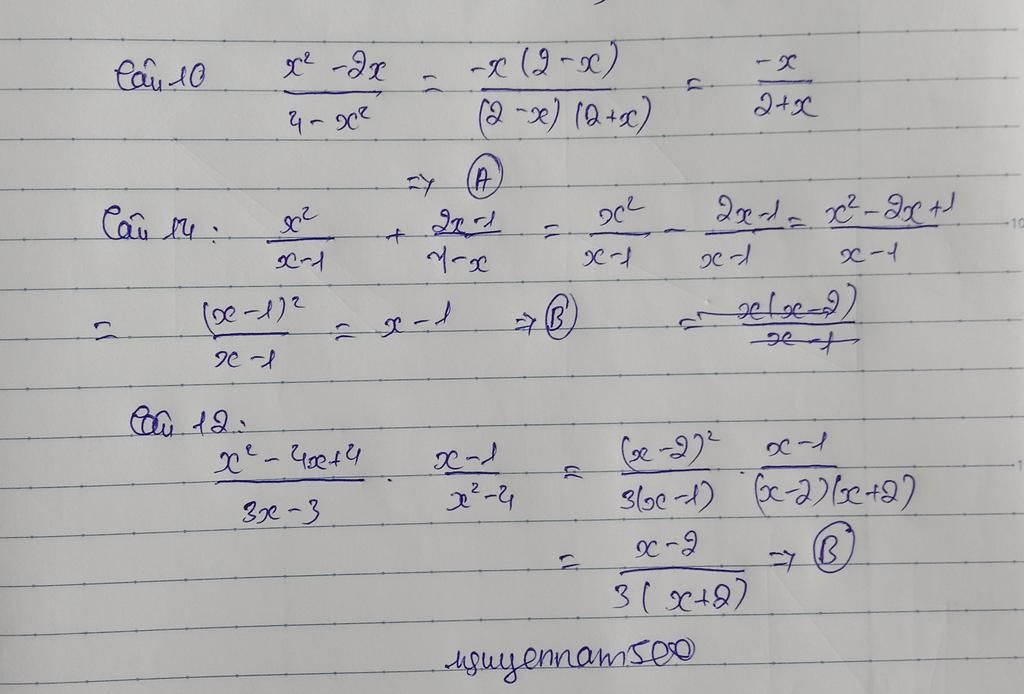 Câu 10 \frac{x² - 2x}{4 - x²} = \frac{-x(2 - x)}{(2 - x)(2 + x)} = \frac{-x}{2 + x}
=> A
Câu 14: \frac{x²}{x - 1} + \frac{2x - 1}{1 - x} = \frac{x²}{x - 1} - \frac{2x - 1}{x - 1} = \frac{x² - 2x + 1}{x - 1}
= \frac{(x - 1)²}{x - 1} = x - 1 => B = \frac{x(x - 2)}{x - 1}
Câu 12:
\frac{x² - 4x + 4}{3x - 3} . \frac{x - 1}{x² - 4} = \frac{(x - 2)²}{3(x - 1)} . \frac{x - 1}{(x - 2)(x + 2)}
= \frac{x - 2}{3(x + 2)} => B
nguyennam500